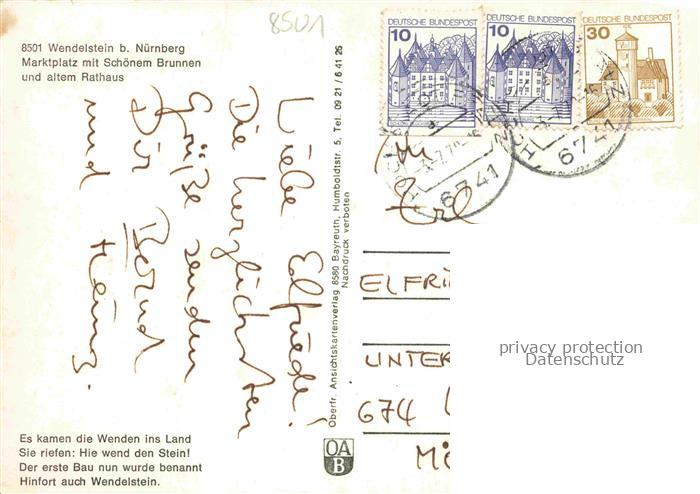 8501
8501 Wendelstein b. Nürnberg
Marktplatz mit Schönem Brunnen
und altem Rathaus
DEUTSCHE BUNDESPOST
10
DEUTSCHE BUNDESPOST
10
DEUTSCHE BUNDESPOST
30
6741
6741
Liebe Elfriede!
Die herzlichsten
Grüße senden
Dir Bernd
und
Oberfr. Ansichtskartenverlag 8580 Bayreuth, Humboldtstr. 5, Tel. 09 21 / 6 41 26
Nachdruck verboten
ELFRI
UNTER
674
privacy protection
Datenschutz
Es kamen die Wenden ins Land
Sie riefen: Hie wend den Stein!
Der erste Bau nun wurde benannt
Hinfort auch Wendelstein.
OA
B